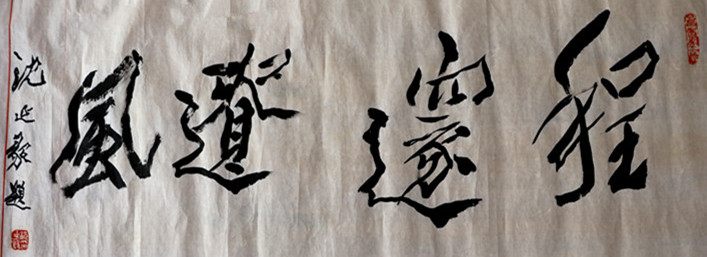 程邃遺風
沈延毅題